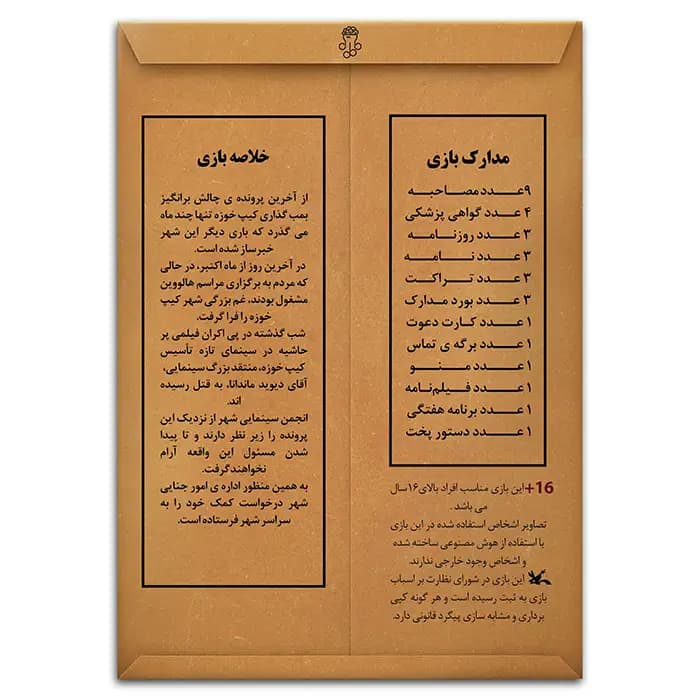 مدارک بازی
۹ عـــدد مصـاحبـه
۴ عدد گواهی پزشکی
۳ عـــدد روزنـامـه
۳ عـــدد نـــامـه
۳ عـــدد تـــراکـت
۳ عدد بورد مدارک
۱ عدد کارت دعوت
۱ عدد برگه ی تماس
۱ عـــدد مـنـــو
۱ عـــدد فیلم‌نامه
۱ عدد برنامه هفتگی
۱ عدد دستور پخت
+16 این بازی مناسب افراد بالای ۱۶ سال
می باشد .
تصاویر اشخاص استفاده شده در این بازی
با استفاده از هوش مصنوعی ساخته شده
و اشخاص وجود خارجی ندارند.
این بازی در شورای نظارت بر اسباب
بازی به ثبت رسیده است و هر گونه کپی
برداری و مشابه سازی پیگرد قانونی دارد.
خلاصه بازی
از آخرین پرونده ی چالش برانگیز
بمب گذاری کیپ خوزه تنها چند ماه
می گذرد که باری دیگر این شهر
خبرساز شده است.
در آخرین روز از ماه اکتبر، در حالی
که مردم به برگزاری مراسم هالووین
مشغول بودند، غم بزرگی شهر کیپ
خوزه را فرا گرفت.
شب گذشته در پی اکران فیلمی پر
حاشیه در سینمای تازه تأسیس
کیپ خوزه، منتقد بزرگ سینمایی،
آقای دیوید ماندانا، به قتل رسیده
اند.
انجمن سینمایی شهر از نزدیک این
پرونده را زیر نظر دارند و تا پیدا
شدن مسئول این واقعه آرام
نخواهند گرفت.
به همین منظور اداره ی امور جنایی
شهر درخواست کمک خود را به
سراسر شهر فرستاده است.